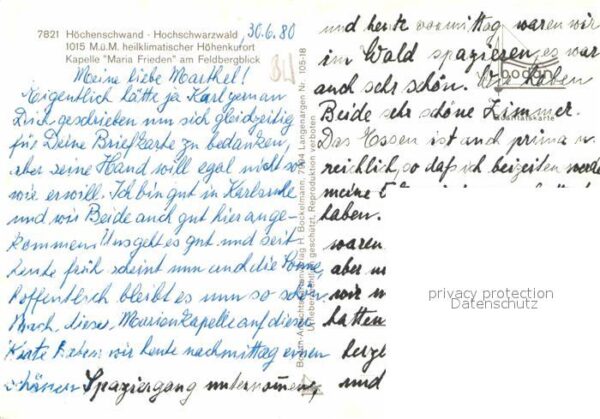 7821 Höchenschwand - Hochschwarzwald
1015 M.ü.M. heilklimatischer Höhenkurort
Kapelle "Maria Frieden" am Feldbergblick
30.6.80
Meine liebe Marthel!
Eigentlich hätte ja Karl german
Dir geschrieben um sich gleichzeitig
für Deine Briefkarte zu bedanken,
aber seine Hand will egal nicht so
wie er will. Ich bin gut in Karlsruhe
und wir Beide auch gut hier ange-
kommen! Uns geht es gut und seit
heute früh scheint nun auch die Sonne
hoffentlich bleibt es nun so schön.
Nach dieser Marienkapelle auf dieser
Karte haben wir heute nachmittag einen
schönen Spaziergang unternommen,
und heute vormittag waren wir
im Wald spazieren, es war
auch sehr schön. Wir haben
Beide sehr schöne Zimmer.
Das Essen ist auch prima u.
reichlich, so daß ich beizeiten werde
meine
haben.
waren
aber
wir
hatten
herzl
und
Bodan-Ansichtskartenverlag H. Bockelmann, 7994 Langenargen Nr. 105-18
Urheberrechtlich geschützt, Reproduktion verboten
bodan
privacy protection
Datenschutz